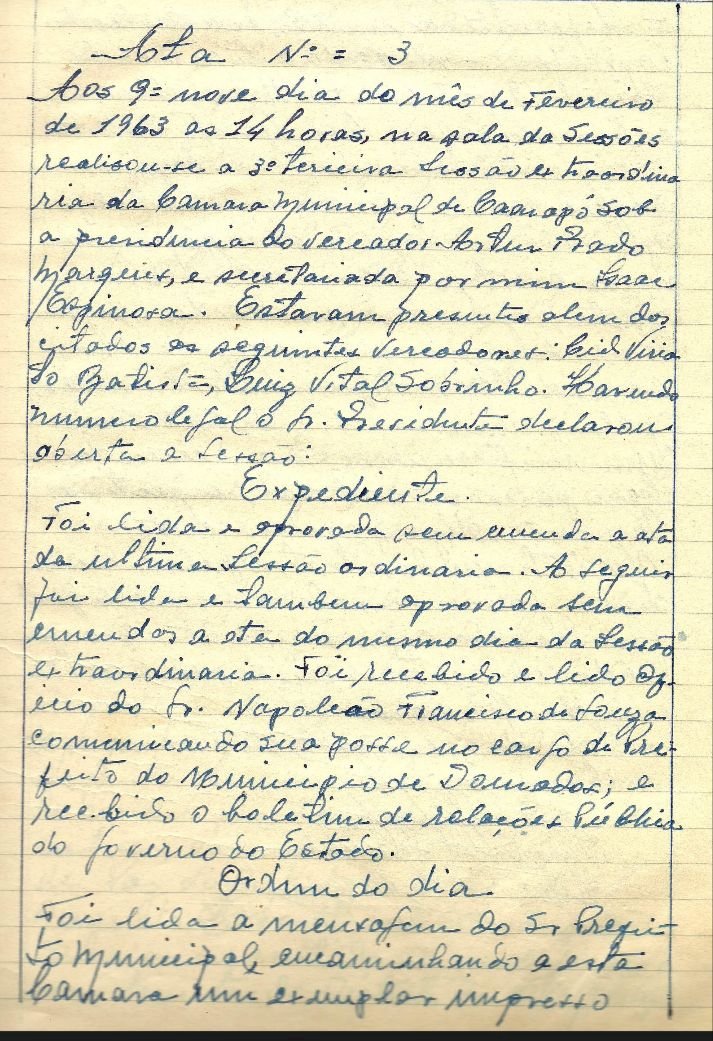 Ata Nº = 3
Aos 9= nove dia do mês de Fevereiro
de 1963 as 14 horas, na sala da Sessões
realisou-se a 3º terceira Sessão extraordina
ria da Camara Municipal de Caarapó sob
a presidencia do vereador Artur Prado
Marques, e secretariada por mim Isaac
Espinosa. Estavam presentes alem dos
citados os seguintes vereadores: Cid Viria
to Batista, Luiz Vital Sobrinho. Havendo
numero legal o Sr. Presidente declarou
aberta a Sessão:
Expediente.
Foi lida e aprovada sem emenda a ata
da ultima Sessão ordinaria. A seguir
foi lida e tambem aprovada sem
emendas a ata do mesmo dia da Sessão
extraordinaria. Foi recebido e lido Of-
icio do Sr. Napoleão Francisco de Souza
comunicando sua posse no cargo de Pre-
feito do Municipio de Dourados; e
recebido o boletim de relações Pública
do governo do Estado.
Ordem do dia
Foi lida a mensagem do Sr Prefei-
to Municipal, encaminhando a esta
Camara um exemplar impresso